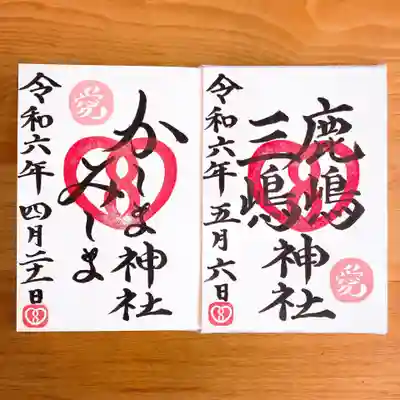 かしま神社
みしま
愛
令和六年 四月二十一日
鹿嶋神社
三嶋
愛
令和六年 五月六日